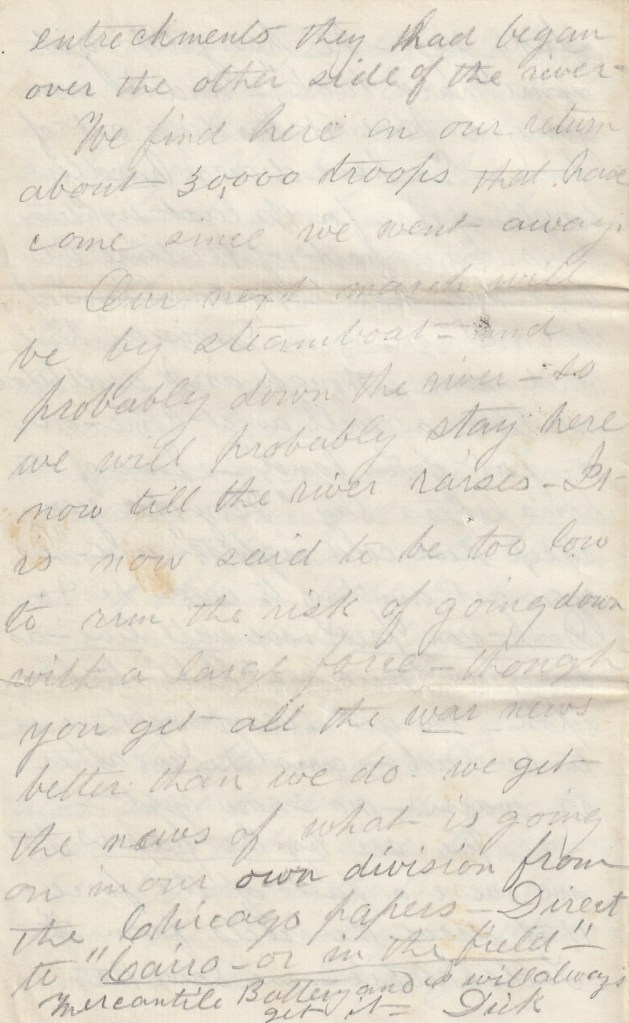 entrechments they had began
over the other side of the river -
We find here on our return
about 30,000 troops that have
come since we went away.
Our next march will
be by steamboat - and
probably down the river - so
we will probably stay here
now till the river raises - It
is now said to be too low
to run the risk of going down
with a large force - though
you get all the war news
better than we do. we get
the news of what is going
on in our own division from
the Chicago papers - Direct
to "Cairo - or in the field" -
Mercantile Battery and I will always
get it - Dick